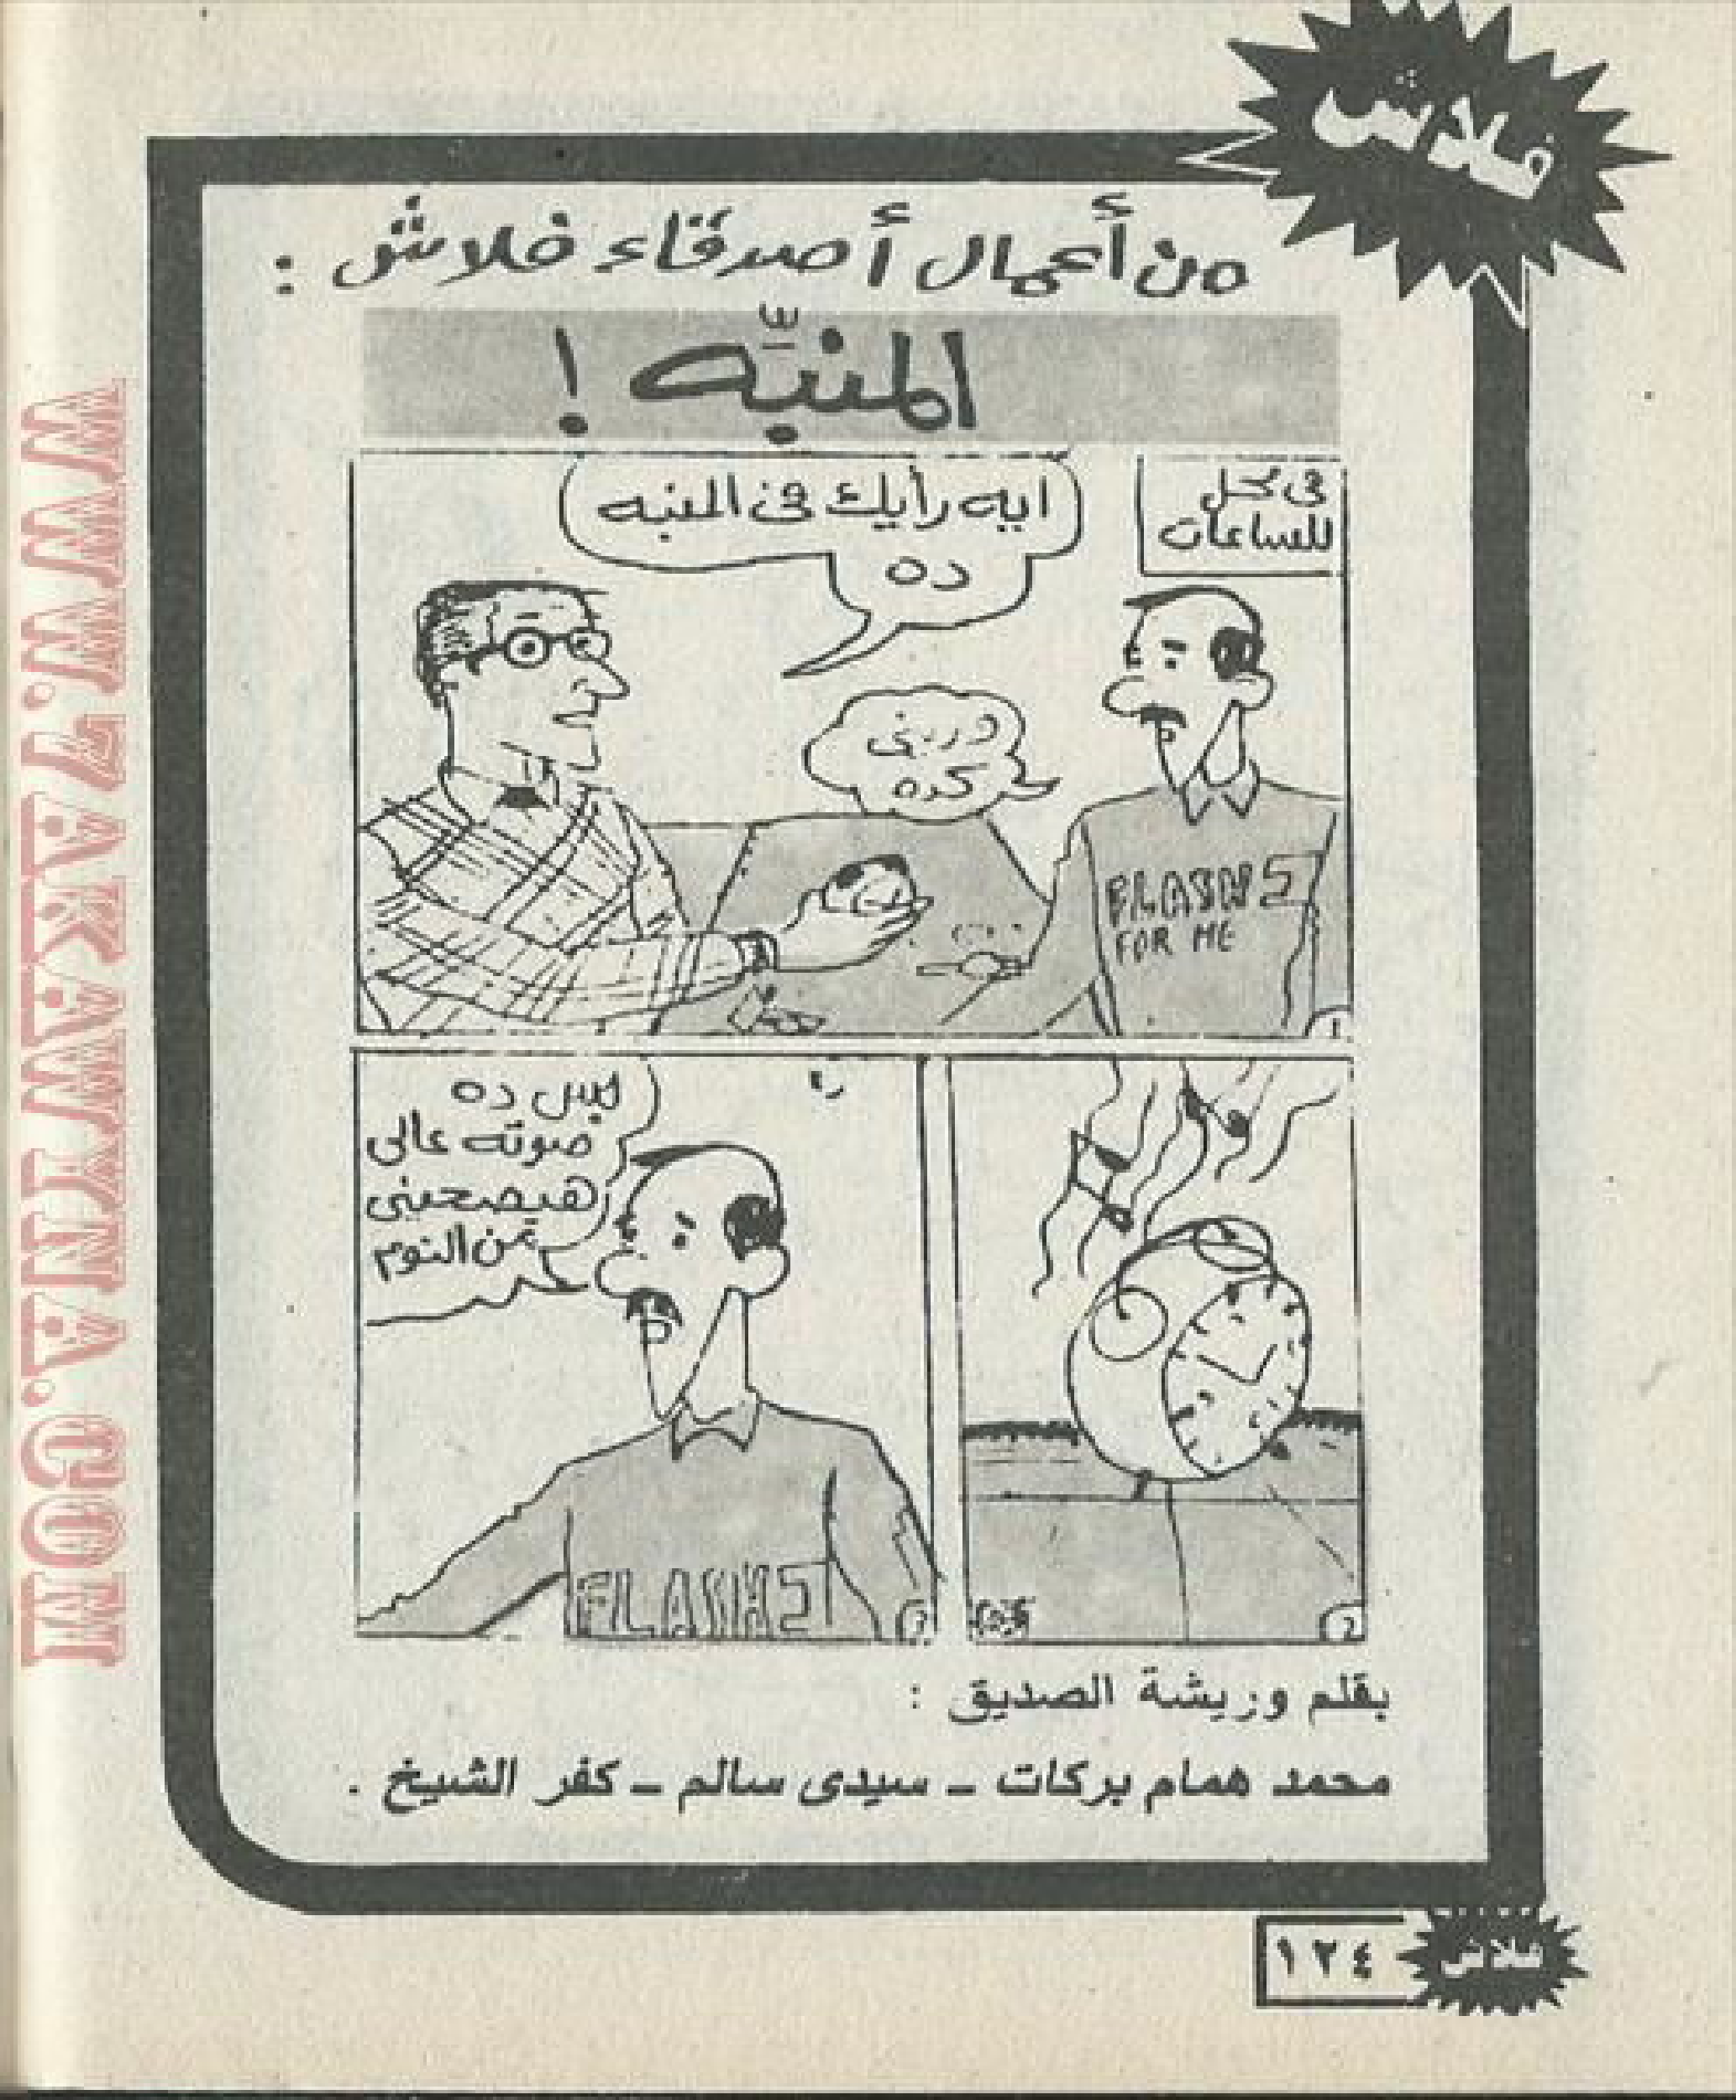 فلاش
من أعمال أصدقاء فلاش :
المنبّه !
فى محل
للساعات
ايه رأيك فى المنبه
ده
كده
FLASH
FOR ME
1
2
بس ده
صوته عالى
هيصحينى
من النوم
FLASH
بقلم وريشة الصديق :
محمد همام بركات - سيدى سالم - كفر الشيخ .
١٢٤
فلاش
WWW.7AKAWITNA.COM